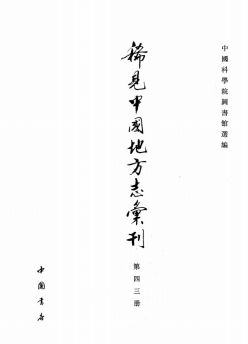 中國科學院圖書館選編
稀見中國地方志彙刊
第四三册
中国书店